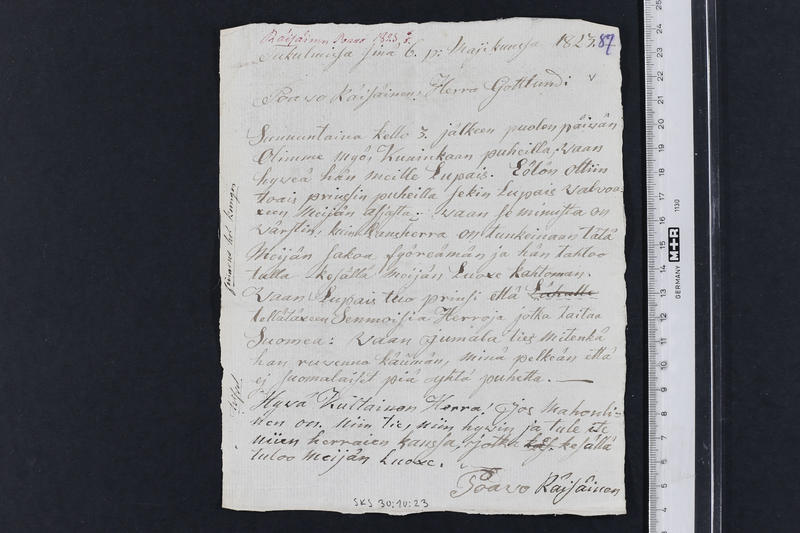 Räisäinen Poavo 1823. 8.
Tukulmissa sinä 6. p: Majikuussa 1823. 87
Poavo Räisäinen, Herra Gottlundi
Sunnuntaina kello 3. jälkeen puolen päivän
Olimme myös Kuninkaan puheilla, vaan
hyveä hän meille Lupais. Eölön ottiin
toais prinssin puheilla sekin Lupais valvoa-
xeen Meijän asjata. vaan se minusta on
värstin, kuin Lansherra on tunkeinaan tätä
Meijän sakoa syöreämän ja hän tahtoo
tulla kesällä Meijän Luoxe kahtoman.
Vaan Lupais tuo prinsi että Lähätte
kellätäxeen Senmoisia Herroja jotka taitaa
Suomea: vaan Jumala ties mitenkä
hän ruvenno käümän, minä pelkeän että
ej Suomalaiset piä yhtä puhetta. —
Hyvä Kultainen Herra! Jos Mahonli-
nen on. niin tie, niin hyvin ja tule ite
niien herraien kanssa, jotka kesällä
tuloo Meijän Luoxe.
Poavo Räisäinen
SKS 30:10:23
GERMANY
M+R
1130
25
24
23
22
21
20
19
18
17
16
15
14
13
12
11
10
9
8
7
6
5
4
3
2
1
0